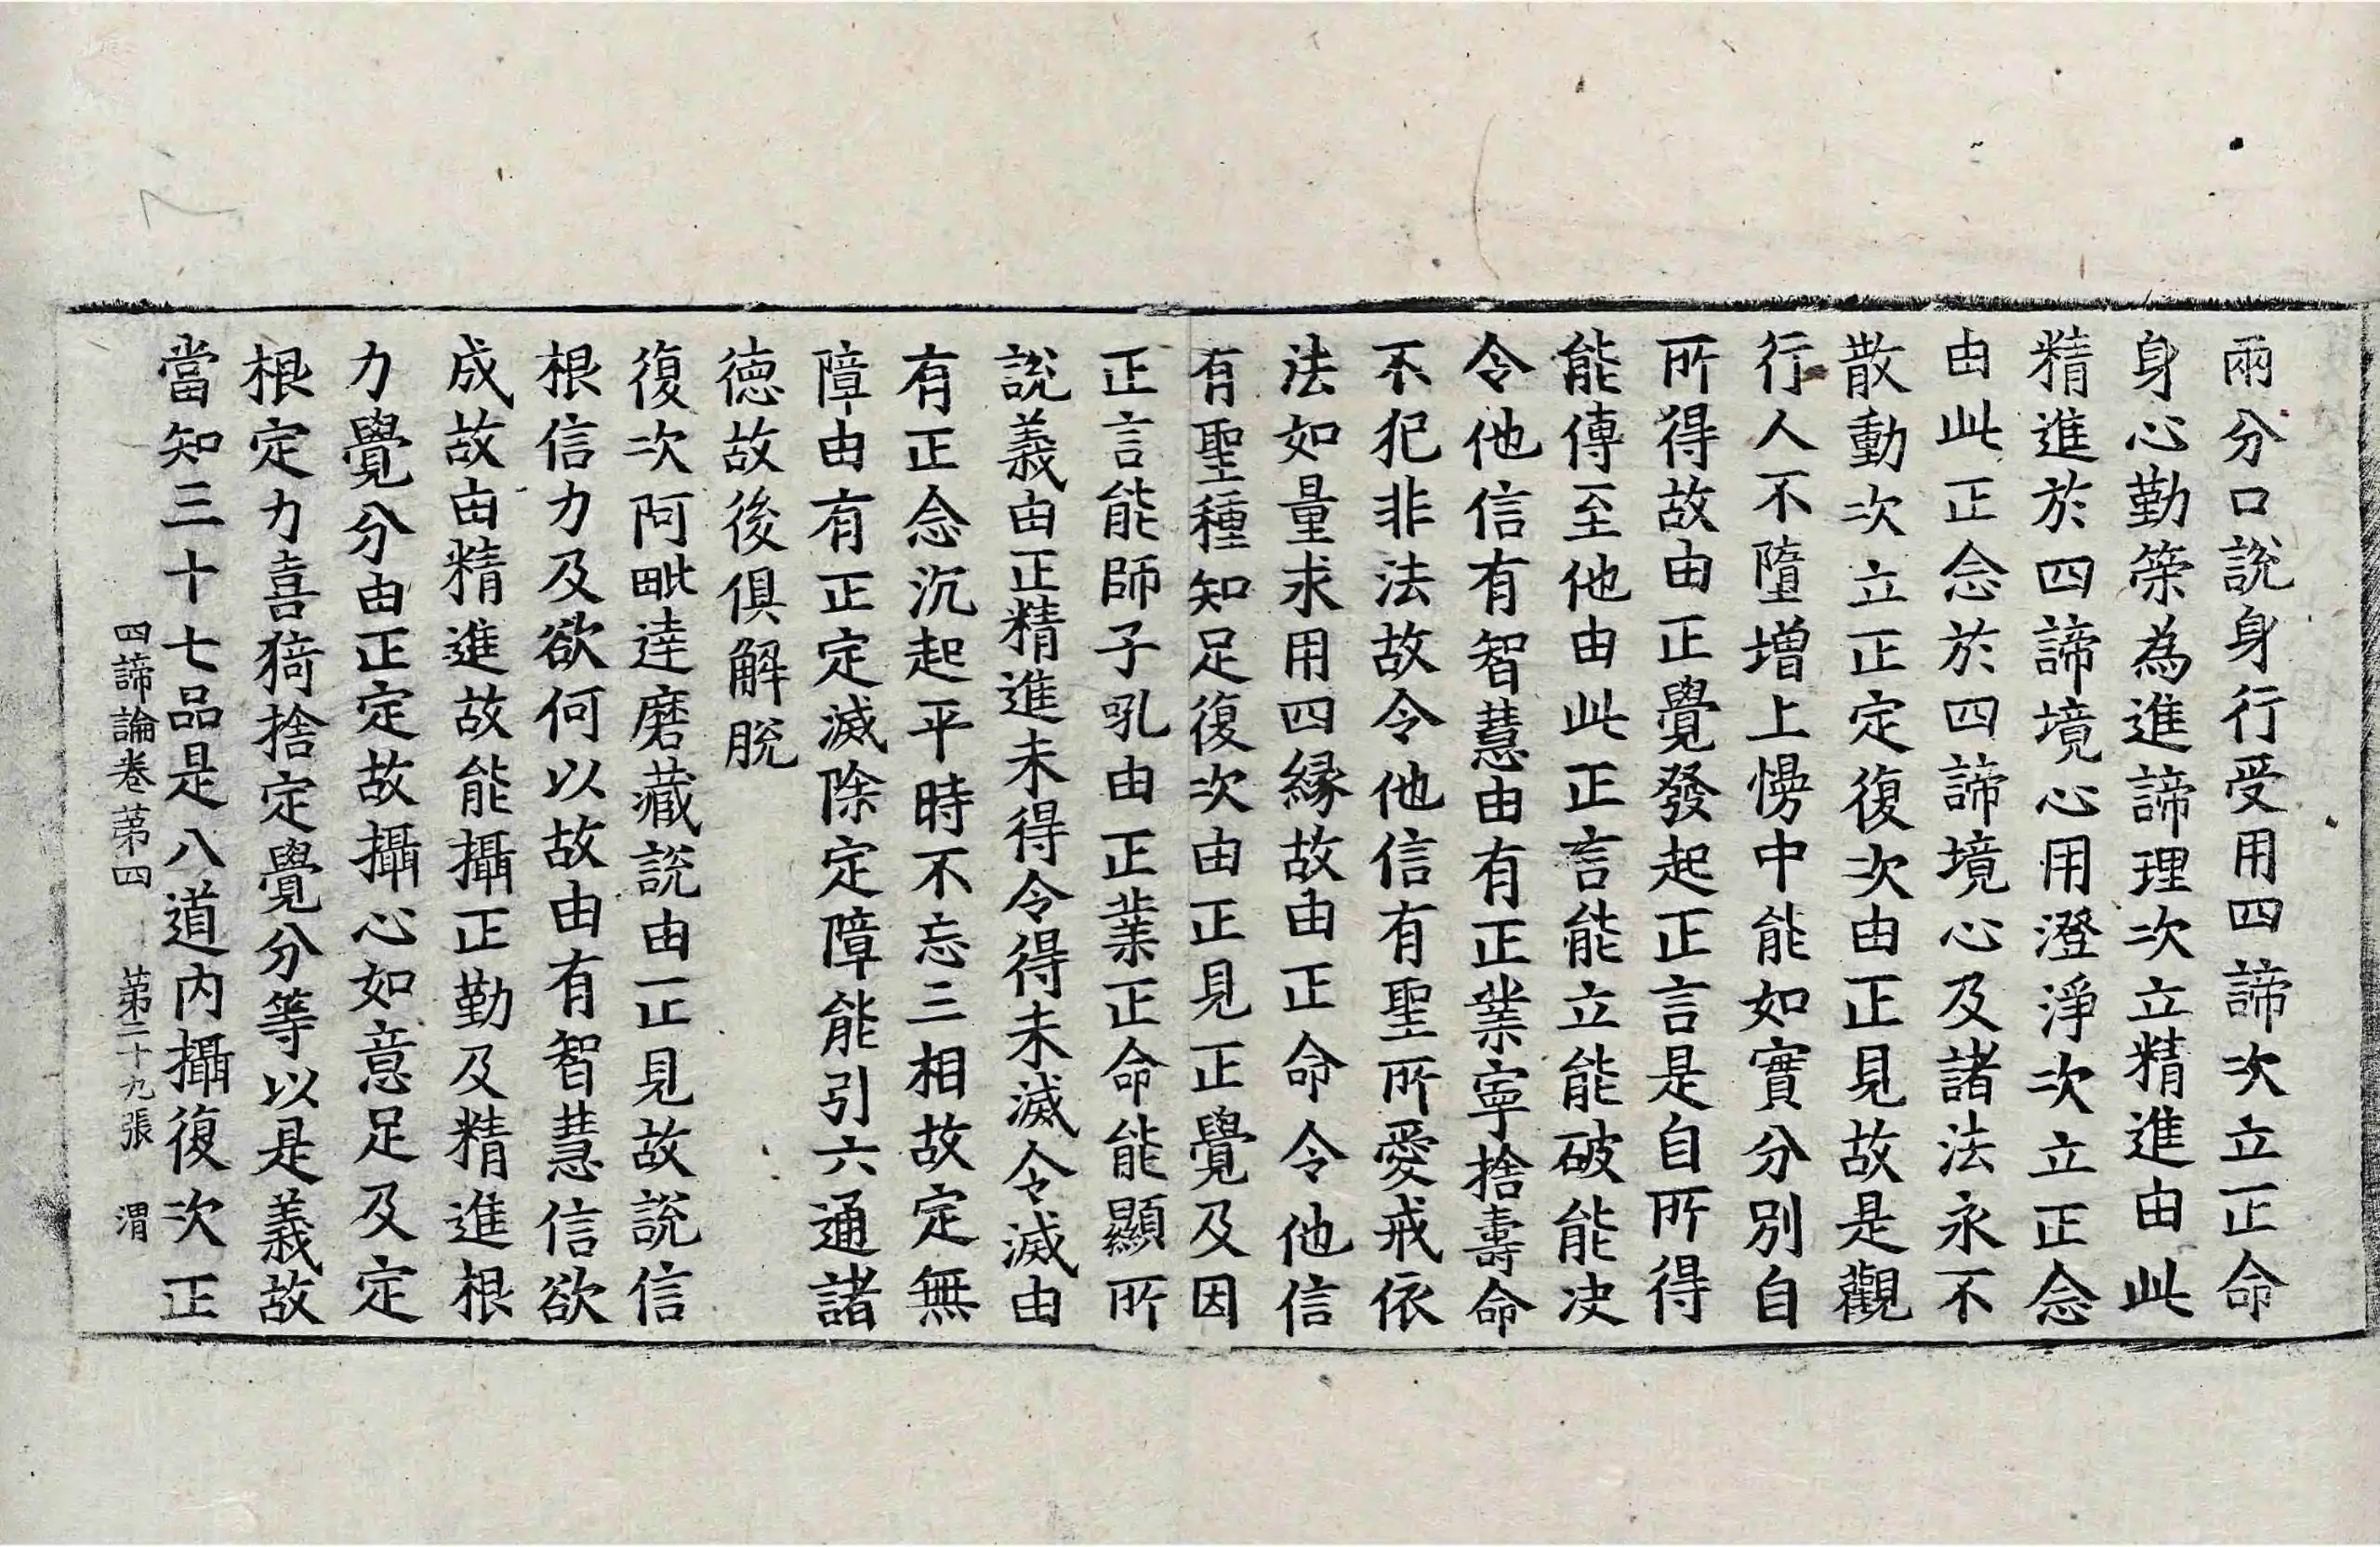 兩分口說身行受用四諦次立正命
身心勤䇿為進諦理次立精進由此
精進於四諦境心用澄淨次立正念
由此正念於四諦境心及諸法永不
散動次立正定復次由正見故是觀
行人不墮增上慢中能如實分別自
所得故由正覺發起正言是自所得
能傳至他由此正言能立能破能決
令他信有智慧由有正業寧捨壽命
不犯非法故令他信有聖所愛戒依
法如量求用四緣故由正命令他信
有聖種知足復次由正見正覺及因
正言能師子吼由正業正命能顯所
說義由正精進未得令得未滅令滅由
有正念沉起平時不忘三相故定無
障由有正定滅除定障能引六通諸
德故後俱解脫
復次阿毗達磨藏說由正見故說信
根信力及欲何以故由有智慧信欲
成故由精進故能攝正勤及精進根
力覺分由正定故攝心如意足及定
根定力喜猗捨定覺分等以是義故
當知三十七品是八道內攝復次正
四諦論卷第四 第二十九張 渭